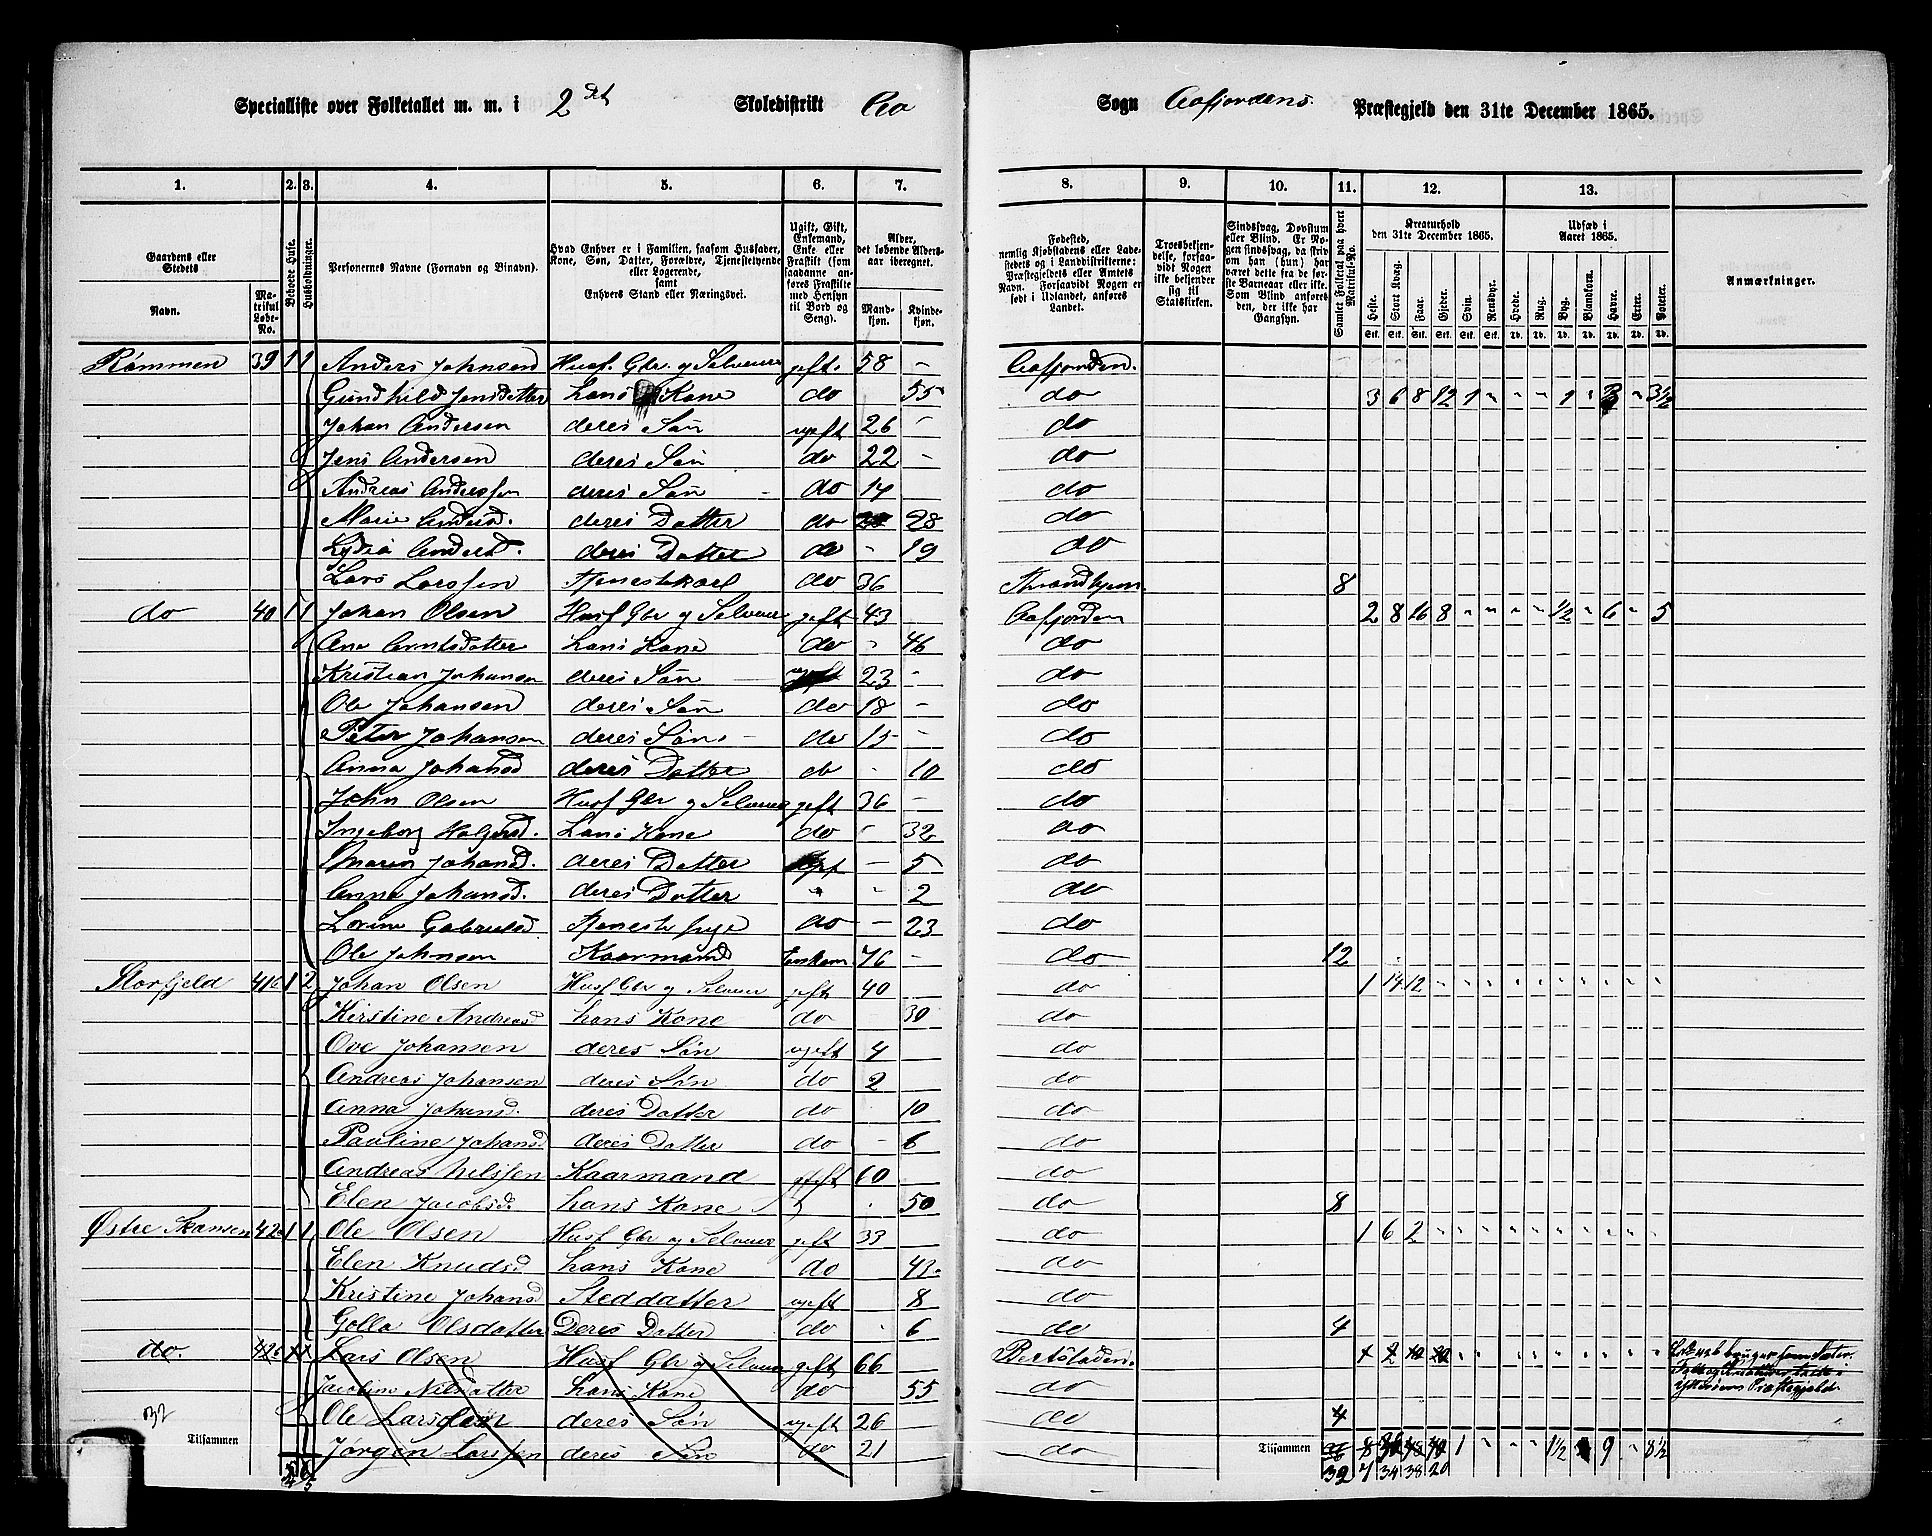 Specialliste over Folketallet m. m. i 2det Skoledistrikt Aa Sogn Aafjordens Præstegjeld den 31te December 1865.
1. 2. 3. 4. 5. 6. 7. 8. 9. 10. 11. 12. 13.
Gaardens eller Stedets
Navn.
Matrikul Løbe-No.
Beboede Huse.
Husholdninger.
Personernes Navne (Fornavn og Binavn).
Hvad Enhver er i Familien, saasom Husfader, Kone, Søn, Datter, Forældre, Tjenestetyende eller Logerende, samt Enhvers Stand eller Næringsvei.
Ugift, Gift, Enkemand, Enke eller Fraskilt (som saadanne anføres Fraskilte med Hensyn til Bord og Seng).
Alder, det løbende Alders-aar iberegnet.
Mandkjøn. Kvindekjøn.
Fødested, nemlig Kjøbstadens eller Ladestedets og i Landdistrikterne: Præstegjeldets eller Amtets Navn. Forsaavidt Nogen er født i Udlandet, anføres Landet.
Troesbekjendelse, forsaavidt Nogen ikke bekjender sig til Statskirken.
Sindssvag, Døvstum eller Blind. Er Nogen sindssvag, da skriv om han (hun) har været dette fra de første Barneaar eller ikke. Som Blind anføres den, der ikke har Gangsyn.
Samlet Folketal paa hvert Matrikul-No.
Kreaturhold den 31te December 1865.
Heste. Stort Kvæg. Faar. Gjeder. Svin. Rensdyr.
Udsæd i Aaret 1865.
Hvede. Rug. Byg. Blandkorn. Havre. Erter. Poteter.
Anmærkninger.
Rømmen 39 1 1 Anders Johnsen Husf. Gbr. og Selveier gift. 58 - Aafjorden.
Gundhild Jensdatter hans Kone do 55 do 3 6 8 12 1 - - - 1 - 3 - 3½
Johan Andersen deres Søn ugift 26 - do
Jens Andersen deres Søn do 22 - do
Andreas Anderssen deres Søn do 14 do
Marie Andersd. deres Datter do 28 do
Lydia Andersd. deres Datter do - 19 do
Lars Larssen Tjenestekarl do 36 Throndhjem 8
do 40 1 1 Johan Olsen Husf Gbr og Selveier gift 43 Aafjorden 2 8 16 8 - - - - 1½ - 6 - 5
Ane Arntsdatter hans Kone do - 46 do
Kristian Johansen deres Søn ugift 23 - do
Ole Johansen deres Søn do 18 - do
Peter Johansen deres Søn do 15 - do
Anna Johansd deres Datter do - 10 do
John Olsen Husf Gbr og Selveier gift 36 - do
Ingeborg Holgersd. hans Kone do - 32 do
Maren Johansd. deres Datter ugift - 5 do
Anna Johansd. deres Datter " - 2 do
Lorine Gabrielsd. Tjenestepige do - 23 do
Ole Johnsen Kaarmand Enkem 76 - do 12
Storfjeld 41 1 2 Johan Olsen Husf Gbr og Selveier gift 40 do 1 14 12 - - - - - - - - - -
Kirstine Andreasd hans Kone do 30 do
Ove Johansen deres Søn ugift 4 do
Andreas Johansen deres Søn do 2 do
Anna Johansd. deres Datter do 10 do
Pauline Johansd deres Datter do - 6 do
Andreas Nilssen Kaarmand gift 60 do
Elen Jacobsd. hans Kone 50 do 8
Østre Skansen 42a 1 1 Ole Olsen Husf Gbr og Selveier gift 33 do 1 6 2 - - - - - - - - - -
Elen Knudsd hans Kone do 43 do
Kristine Johansd Steddatter ugift 8 do
Golla Olsdatter Deres Datter do - 6 do 4
do. 42b Lars Olsen Husf Gbr og Selveier gift 66 1 2
Jacobine Nilsdatter hans Kone do 55 do
Ole Larssen deres Søn ugift 26 do 4
32
Jørgen Larssen deres Søn do 21 do
Tilsammen Tilsammen 1 - - 1½ 9 - 8½
32 7 34 38 20